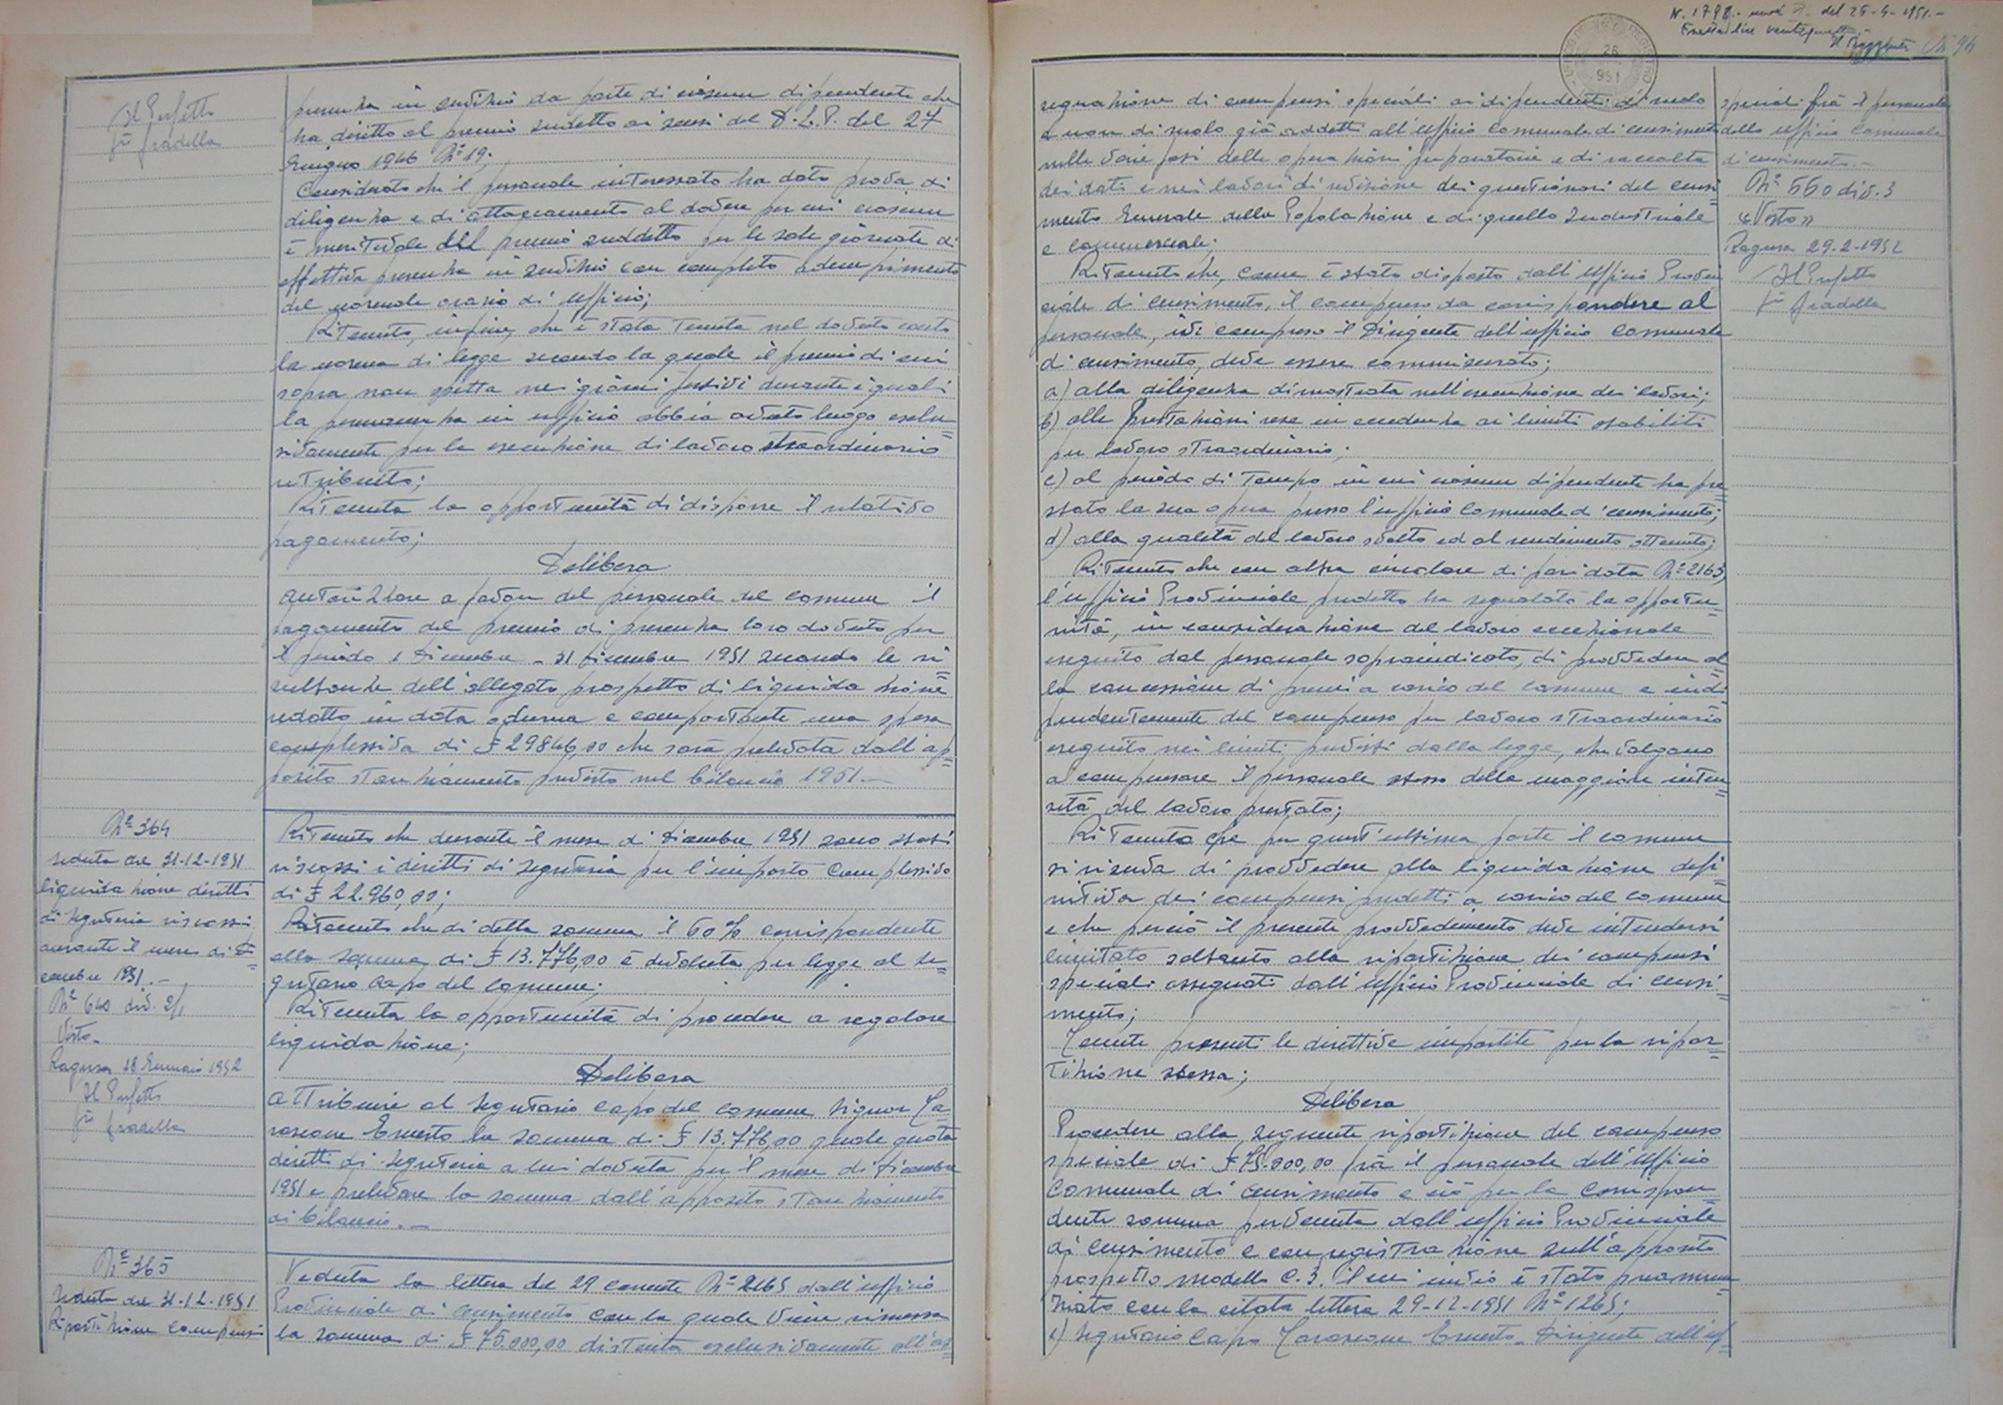 Il Prefetto
fto Gradella
presenza in servizio da parte di ciascun dipendente che
ha diretto al premio sudetto ai sensi del D.L.P. del 27
Giugno 1946 N° 19;
Considerato che il personale interessato ha dato prova di
diligenza e di attaccamento al dovere per cui ciascuno
è meritevole del premio suddetto per le sole giornate di
effettiva presenza in servizio con completo adempimento
del normale orario di ufficio;
Ritenuto, infine, che è stata tenuta nel dovuto conto
la norma di legge secondo la quale il premio di cui
sopra non spetta nei giorni festivi durante i quali
la permanenza in ufficio abbia avuto luogo esclu=
sivamente per la esecuzione di lavoro straordinario
retribuito;
Ritenuta la opportunità di disporre il relativo
pagamento;
Delibera
Autorizzare a favore del personale del comune il
pagamento del premio di presenza loro dovuto per
il periodo 1 Dicembre - 31 Dicembre 1951 secondo le ri=
sultanze dell'allegato prospetto di liquidazione
redatto in data odierna e comportante una spesa
complessiva di £ 29846,00 che sarà prelevata dall'ap=
posito stanziamento previsto nel bilancio 1951.-
N° 364
Seduta del 31-12-1951
liquidazione diretti
di segreteria riscossi
durante il mese di Di=
cembre 1951.-
N° 640 div. 2/1
Visto-
Ragusa 18 Gennaio 1952
Il Prefetto
fto Gradella
Ritenuto che durante il mese di Dicembre 1951 sono stati
riscossi i diretti di segreteria per l'importo complessivo
di £ 22.960,00;
Ritenuto che di detta somma il 60% corrispondente
alla somma di £ 13.776,00 è devoluta per legge al se=
gretario Capo del comune;
Ritenuta la opportunità di procedere a regolare
liquidazione;
Delibera
Attribuire al Segretario Capo del comune Signor Ta=
rascione Ernesto la somma di £ 13.776,00 quale quota
diretti di segreteria a lui dovuta per il mese di Dicembre
1951 e prelevare la somma dall'apposito stanziamento
di bilancio.-
N° 365
Seduta del 31-12-1951
Ripartizione compensi
Veduta la lettera del 29 corrente N° 2165 dall'ufficio
Provinciale di censimento con la quale viene rimessa
la somma di £ 75.000,00 distinta esclusivamente all'as=
N. 1798.- del 26-4-1951.-
N° 96
26
951
segnazione di compensi speciali ai dipendenti di ruolo
e non di ruolo già addetti all'ufficio Comunale di censimento
nelle varie fasi delle operazioni preparatorie e di raccolta
dei dati e nei lavori di revisione dei questionari del censi
mento Generale della Popolazione e di quello Industriale
e commerciale;
Ritenuto che, come è stato disposto dall'Ufficio Provin
ciale di censimento, il compenso da corrispondere al
personale, ivi compreso il Dirigente dell'ufficio comunale
di censimento, deve essere commisurato;
a) alla diligenza dimostrata nell'esecuzione dei lavori;
b) alle prestazioni rese in eccedenza ai limiti stabiliti
per lavoro straordinario;
c) al periodo di tempo in cui ciascun dipendente ha pre=
stato la sua opera presso l'ufficio Comunale di censimento;
d) alla qualità del lavoro svolto ed al rendimento ottenuto;
Ritenuto che con altra circolare di pari data N° 2163,
l'Ufficio Provinciale predetto ha segnalato la opportu=
nità, in considerazione del lavoro eccezionale
eseguito dal personale sopraindicato, di provvedere al=
la concessione di premi a carico del comune e indi
pendentemente del compenso per lavoro straordinario
eseguito nei limiti previsti dalla legge, che valgano
a compensare il personale stesso della maggiore inten
sità del lavoro prestato;
Ritenuto che per quest'ultima parte il comune
si riserva di provvedere alla liquidazione defi=
nitiva dei compensi predetti a carico del comune
e che perciò il presente provvedimento deve intendersi
limitato soltanto alla ripartizione dei compensi
speciali assegnati dall'Ufficio Provinciale di censi=
mento;
Tenute presenti le direttive impartite per la ripar=
tizione stessa;
Delibera
Procedere alla seguente ripartizione del compenso
speciale di £ 75.000,00 fra il personale dell'Ufficio
Comunale di censimento e ciò per la corrispon=
dente somma pervenuta dall'ufficio Provinciale
di censimento e con registrazione sull'apposito
prospetto modello C.3. il cui invio è stato preannun
ziato con la citata lettera 29-12-1951 N° 1265;
Segretario Capo Tarascione Ernesto - Dirigente dell'uf=
speciali fra il personale
dello ufficio Comunale
di censimento.-
N° 550 div. 3
"Visto"
Ragusa 29-2-1952
Il Prefetto
fto Gradella